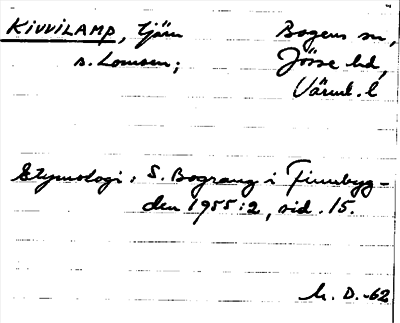 KIVVILAMP, tjärn Bogens sn,
s. Lomsen; Jösse hd,
Värml. l
Etymologi: S. Bograng i Finnbyg-
den 1955:2, sid. 15.
h. D. -62